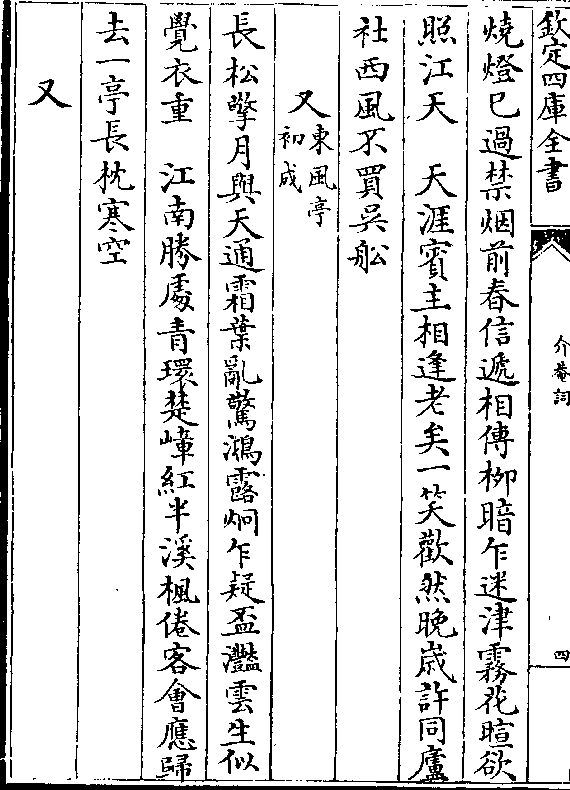 欽定四庫全書
介菴詞
四
燒燈已過禁烟前春信遞相傳柳暗乍迷津霧花暄欲
照江天　天涯賓主相逢老矣一笑歡然晚歲許同廬
社西風不買吳舩
又東風亭初成
長松擎月與天通霜葉亂驚鴻露炯乍疑盃灩雲生似
覺衣重　江南勝處青環楚嶂紅半溪楓倦客會應歸
去一亭長枕寒空
又